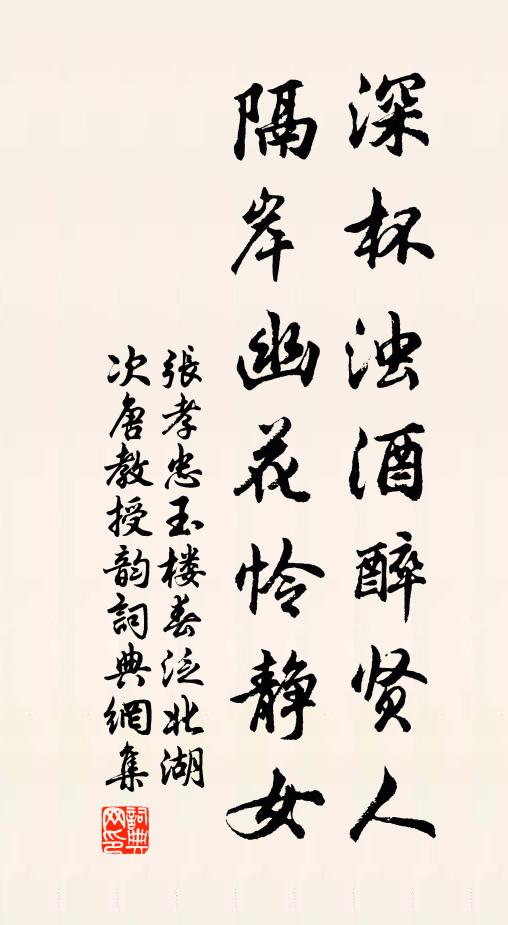 深杯浊酒醉贤人
隔岸幽花怜静女
張孝忠玉楼春泛北湖
次唐教授韵詞典網集
詞典網印